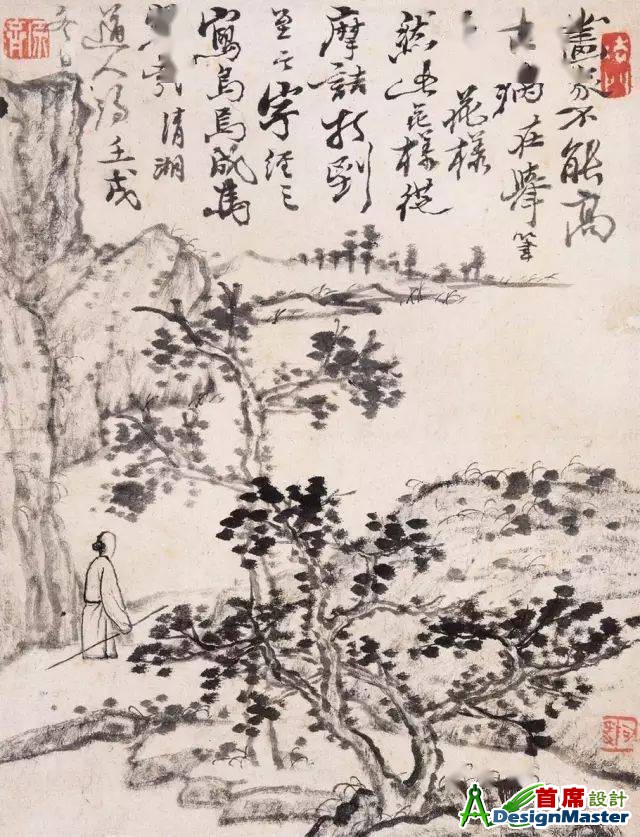 畫家不能高
古病在舉筆
花樣
然此花樣從
摩詰打到
至今字經三
寫烏焉成馬
清湘
道人濟壬戌
首席設計
ADesignMaster